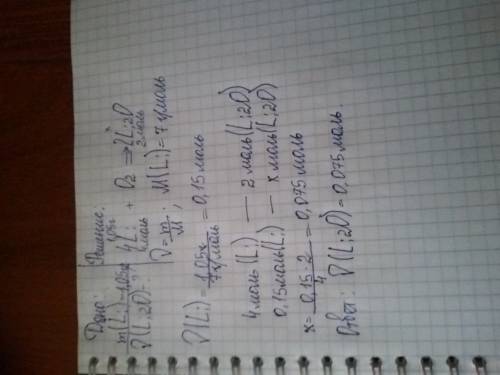 Дано: Решение.
m(Li)=1,05г 1,05г x
4Li + O2 => 2Li2O
ν(Li2O)=? 4моль 2моль
ν=m/M; M(Li)=7 г/моль
ν(Li)=1,05г/7г/моль=0,15моль
4моль(Li) — 2моль(Li2O)
0,15моль(Li) — x моль(Li2O)
x=0,15·2/4=0,075моль
Ответ: ν(Li2O)=0,075моль.